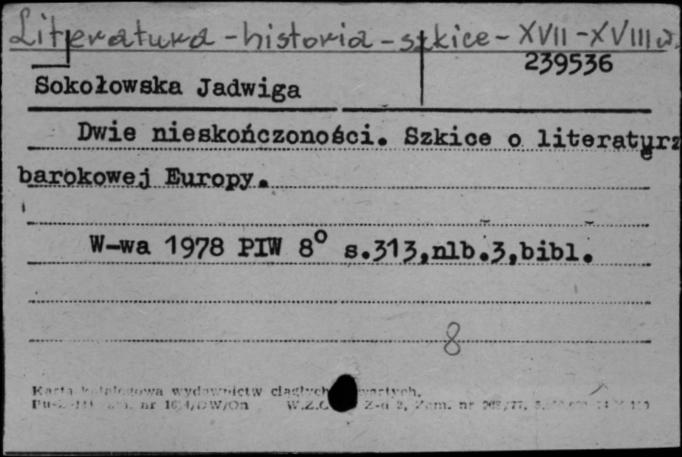 Literatura - historia - szkice - XVII - XVIII w.
239536
Sokołowska Jadwiga
Dwie nieskończoności. Szkice o literaturze
barokowej Europy.
W-wa 1978 PIW 8° s.313,nlb.3,bibl.
8
Karta katalogowa wydawnictw ciągłych
nr W.Z.C Z-d 2, Zam. nr